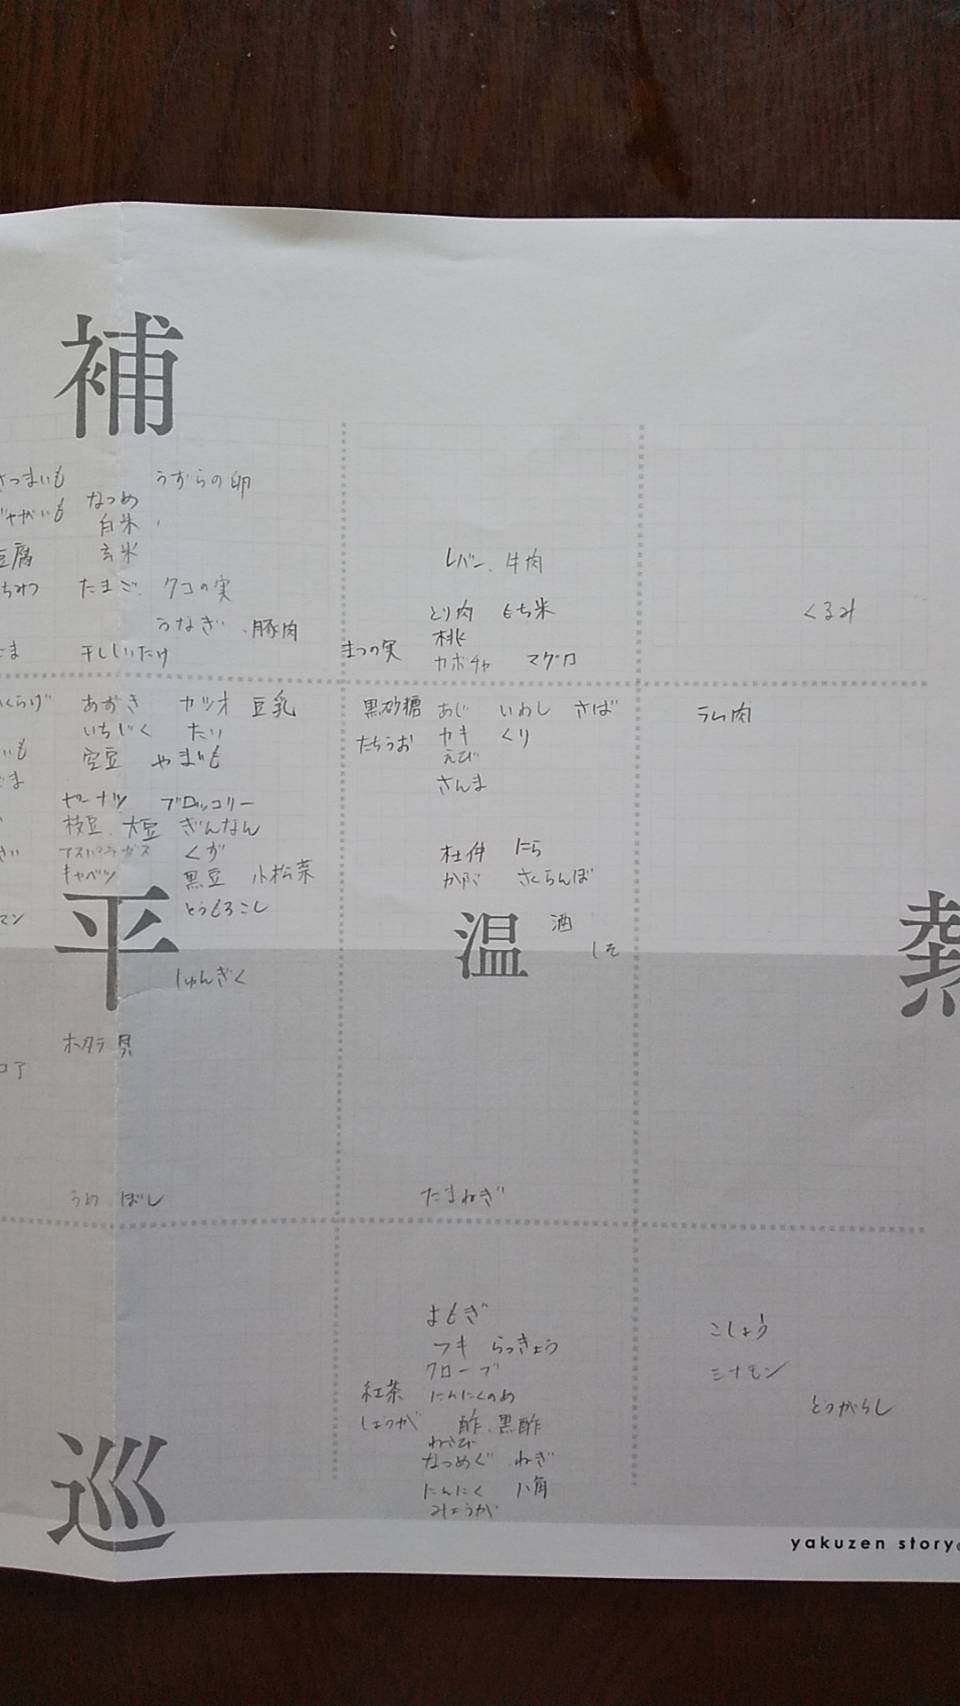 補
さつまいも うずらの卵
じゃがいも なつめ
白米
豆腐 玄米
ちみつ たまご クコの実
うなぎ、豚肉
ごま 干ししいたけ
レバー、牛肉
とり肉 もち米
桃
まつの実 カボチャ マグロ
くるみ
くらげ あずき カツオ 豆乳
いちじく たい
いも 空豆 やまいも
ごま
ピーナツ ブロッコリー
枝豆、大豆 ぎんなん
さい アスパラガス くず
キャベツ 黒豆 小松菜
マン とうもろこし
平
しゅんぎく
ホタテ貝
コア
うめぼし
黒砂糖 あじ いわし さば
たちうお カキ くり
えび
さんま
杜仲 にら
かぶ さくらんぼ
温 酒
しそ
たまねぎ
ラム肉
熱
よもぎ
フキ らっきょう
クローブ
紅茶 にんにくのめ
しょうが 酢、黒酢
わさび
なつめぐ ねぎ
にんにく 八角
みょうが
こしょう
シナモン
とうがらし
巡
yakuzen story